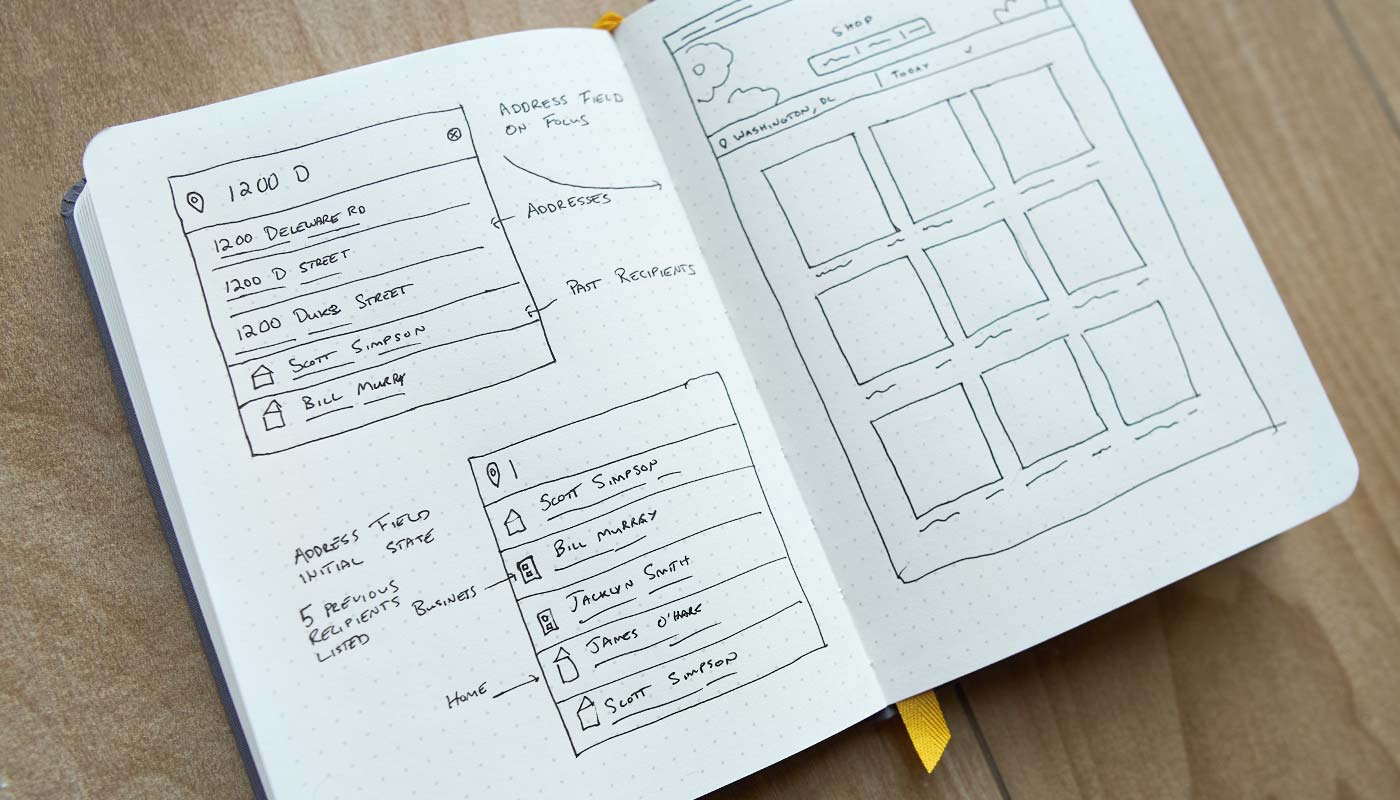 1200 D
1200 DELEWARE RD
1200 D STREET
1200 DUKE STREET
SCOTT SIMPSON
BILL MURRY
ADDRESS FIELD
ON FOCUS
ADDRESSES
PAST RECIPIENTS
ADDRESS FIELD
INITIAL STATE
5 PREVIOUS
RECIPIENTS
LISTED
BUSINESS
HOME
SCOTT SIMPSON
BILL MURRAY
JACKLYN SMITH
JAMES O'HARE
SCOTT SIMPSON
SHOP
WASHINGTON, DC
TODAY